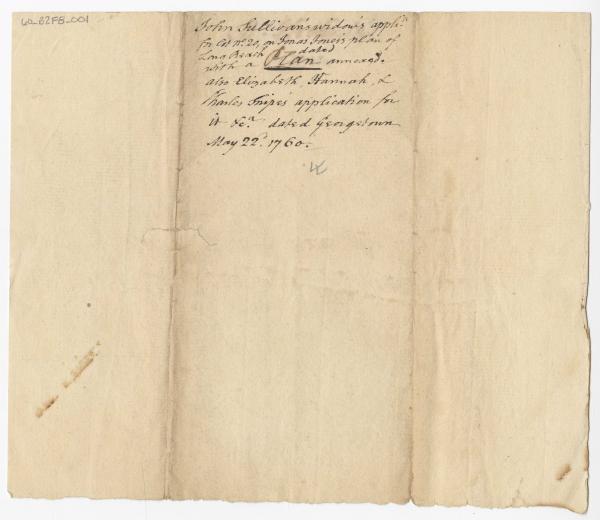 60_B2F8_001
John Sullivan's widow's appli.n
for lot No. 20, on Jonas Jones's plan of
Long Reach dated
with a Plan annexed.
also Elizabeth, Hannah, &
Charles Snipe's application for
it &c.a dated Georgetown
May 22d. 1760.